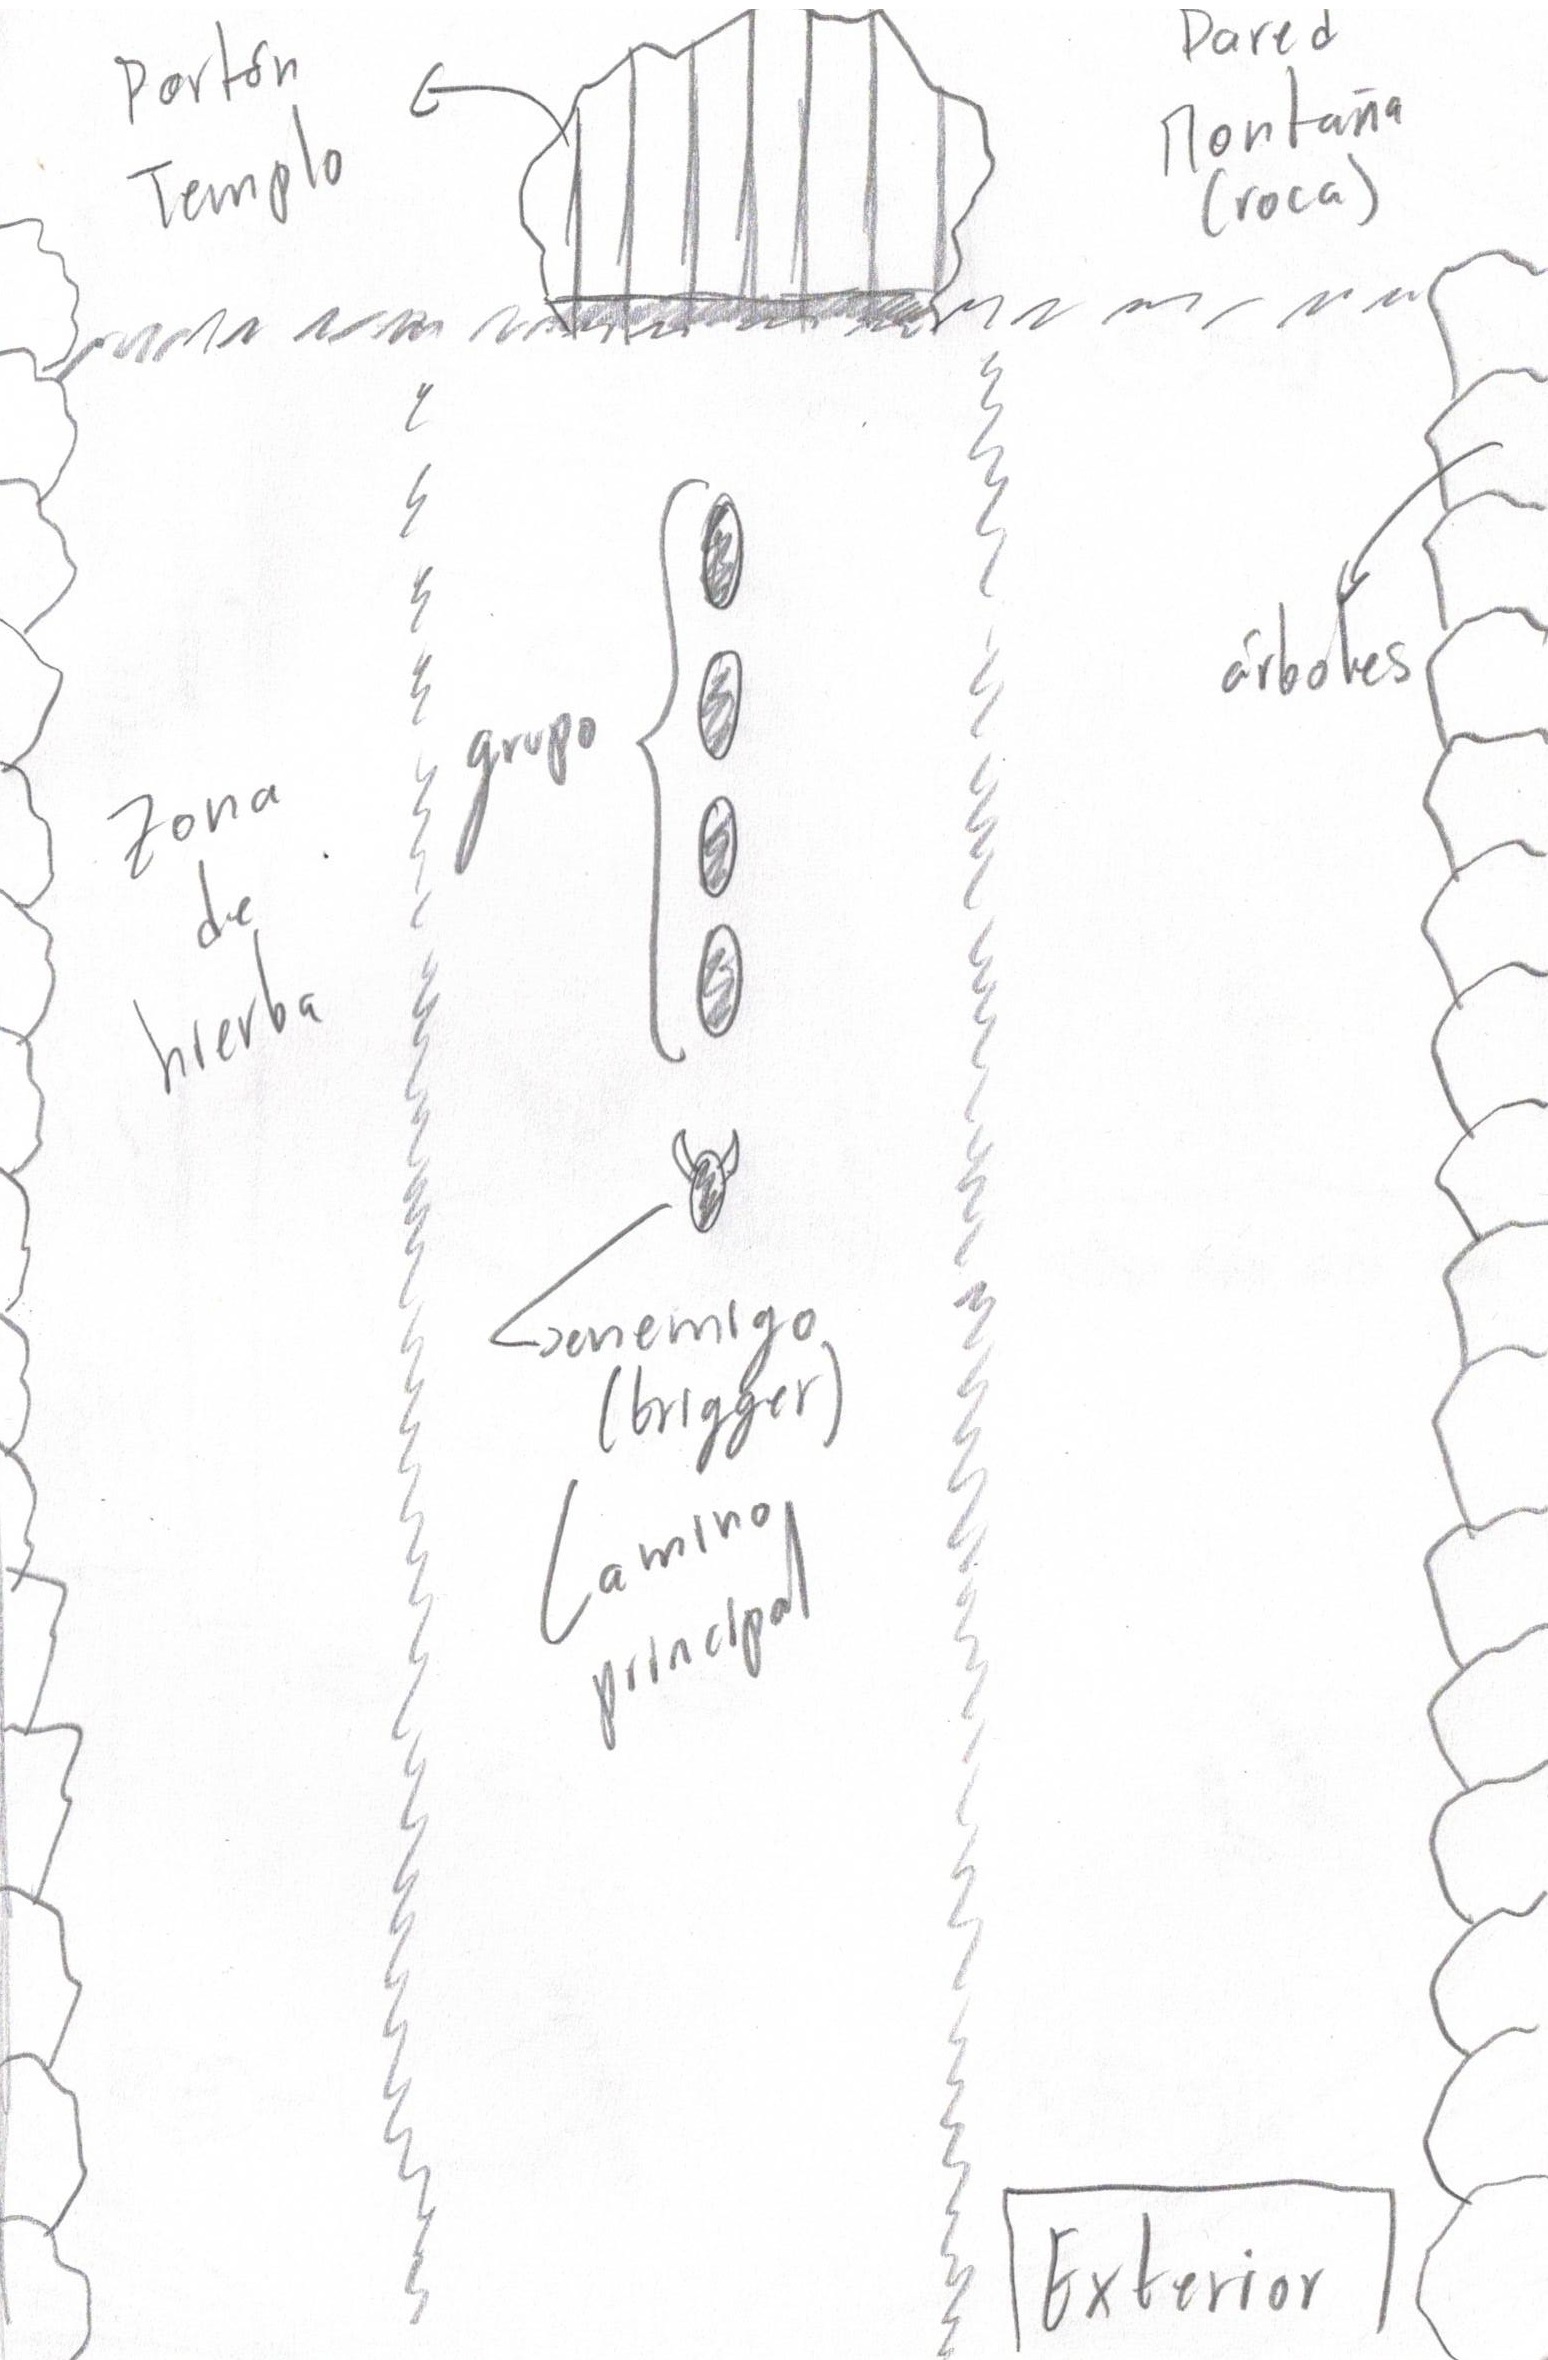 Portón
Templo
Pared
Montaña
(roca)
árboles
grupo
Zona
de
hierba
enemigo
(trigger)
Camino
principal
Exterior